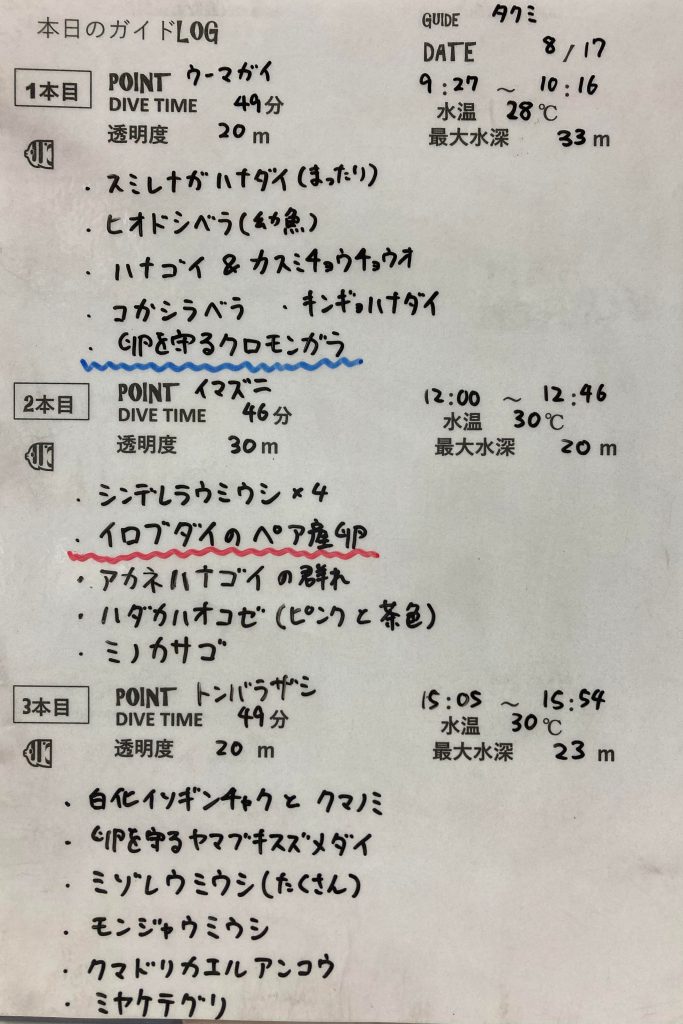 本日のガイドLOG
GUIDE タクミ
DATE 8/17
1本目 POINT ウーマガイ 9:27 ～ 10:16
DIVE TIME 49分 水温 28℃
透明度 20m 最大水深 33m
・スミレナガハナダイ(まったり)
・ヒオドシベラ(幼魚)
・ハナゴイ & カスミチョウチョウオ
・コガシラベラ ・キンギョハナダイ
・卵を守るクロモンガラ
2本目 POINT イマズニ 12:00 ～ 12:46
DIVE TIME 46分 水温 30℃
透明度 30m 最大水深 20m
・シンデレラウミウシ×4
・イロブダイのペア産卵
・アカネハナゴイの群れ
・ハダカハオコゼ(ピンクと茶色)
・ミノカサゴ
3本目 POINT トンバラザシ 15:05 ～ 15:54
DIVE TIME 49分 水温 30℃
透明度 20m 最大水深 23m
・白化イソギンチャクと クマノミ
・卵を守るヤマブキスズメダイ
・ミゾレウミウシ(たくさん)
・モンジャウミウシ
・クマドリカエルアンコウ
・ミヤケテグリ